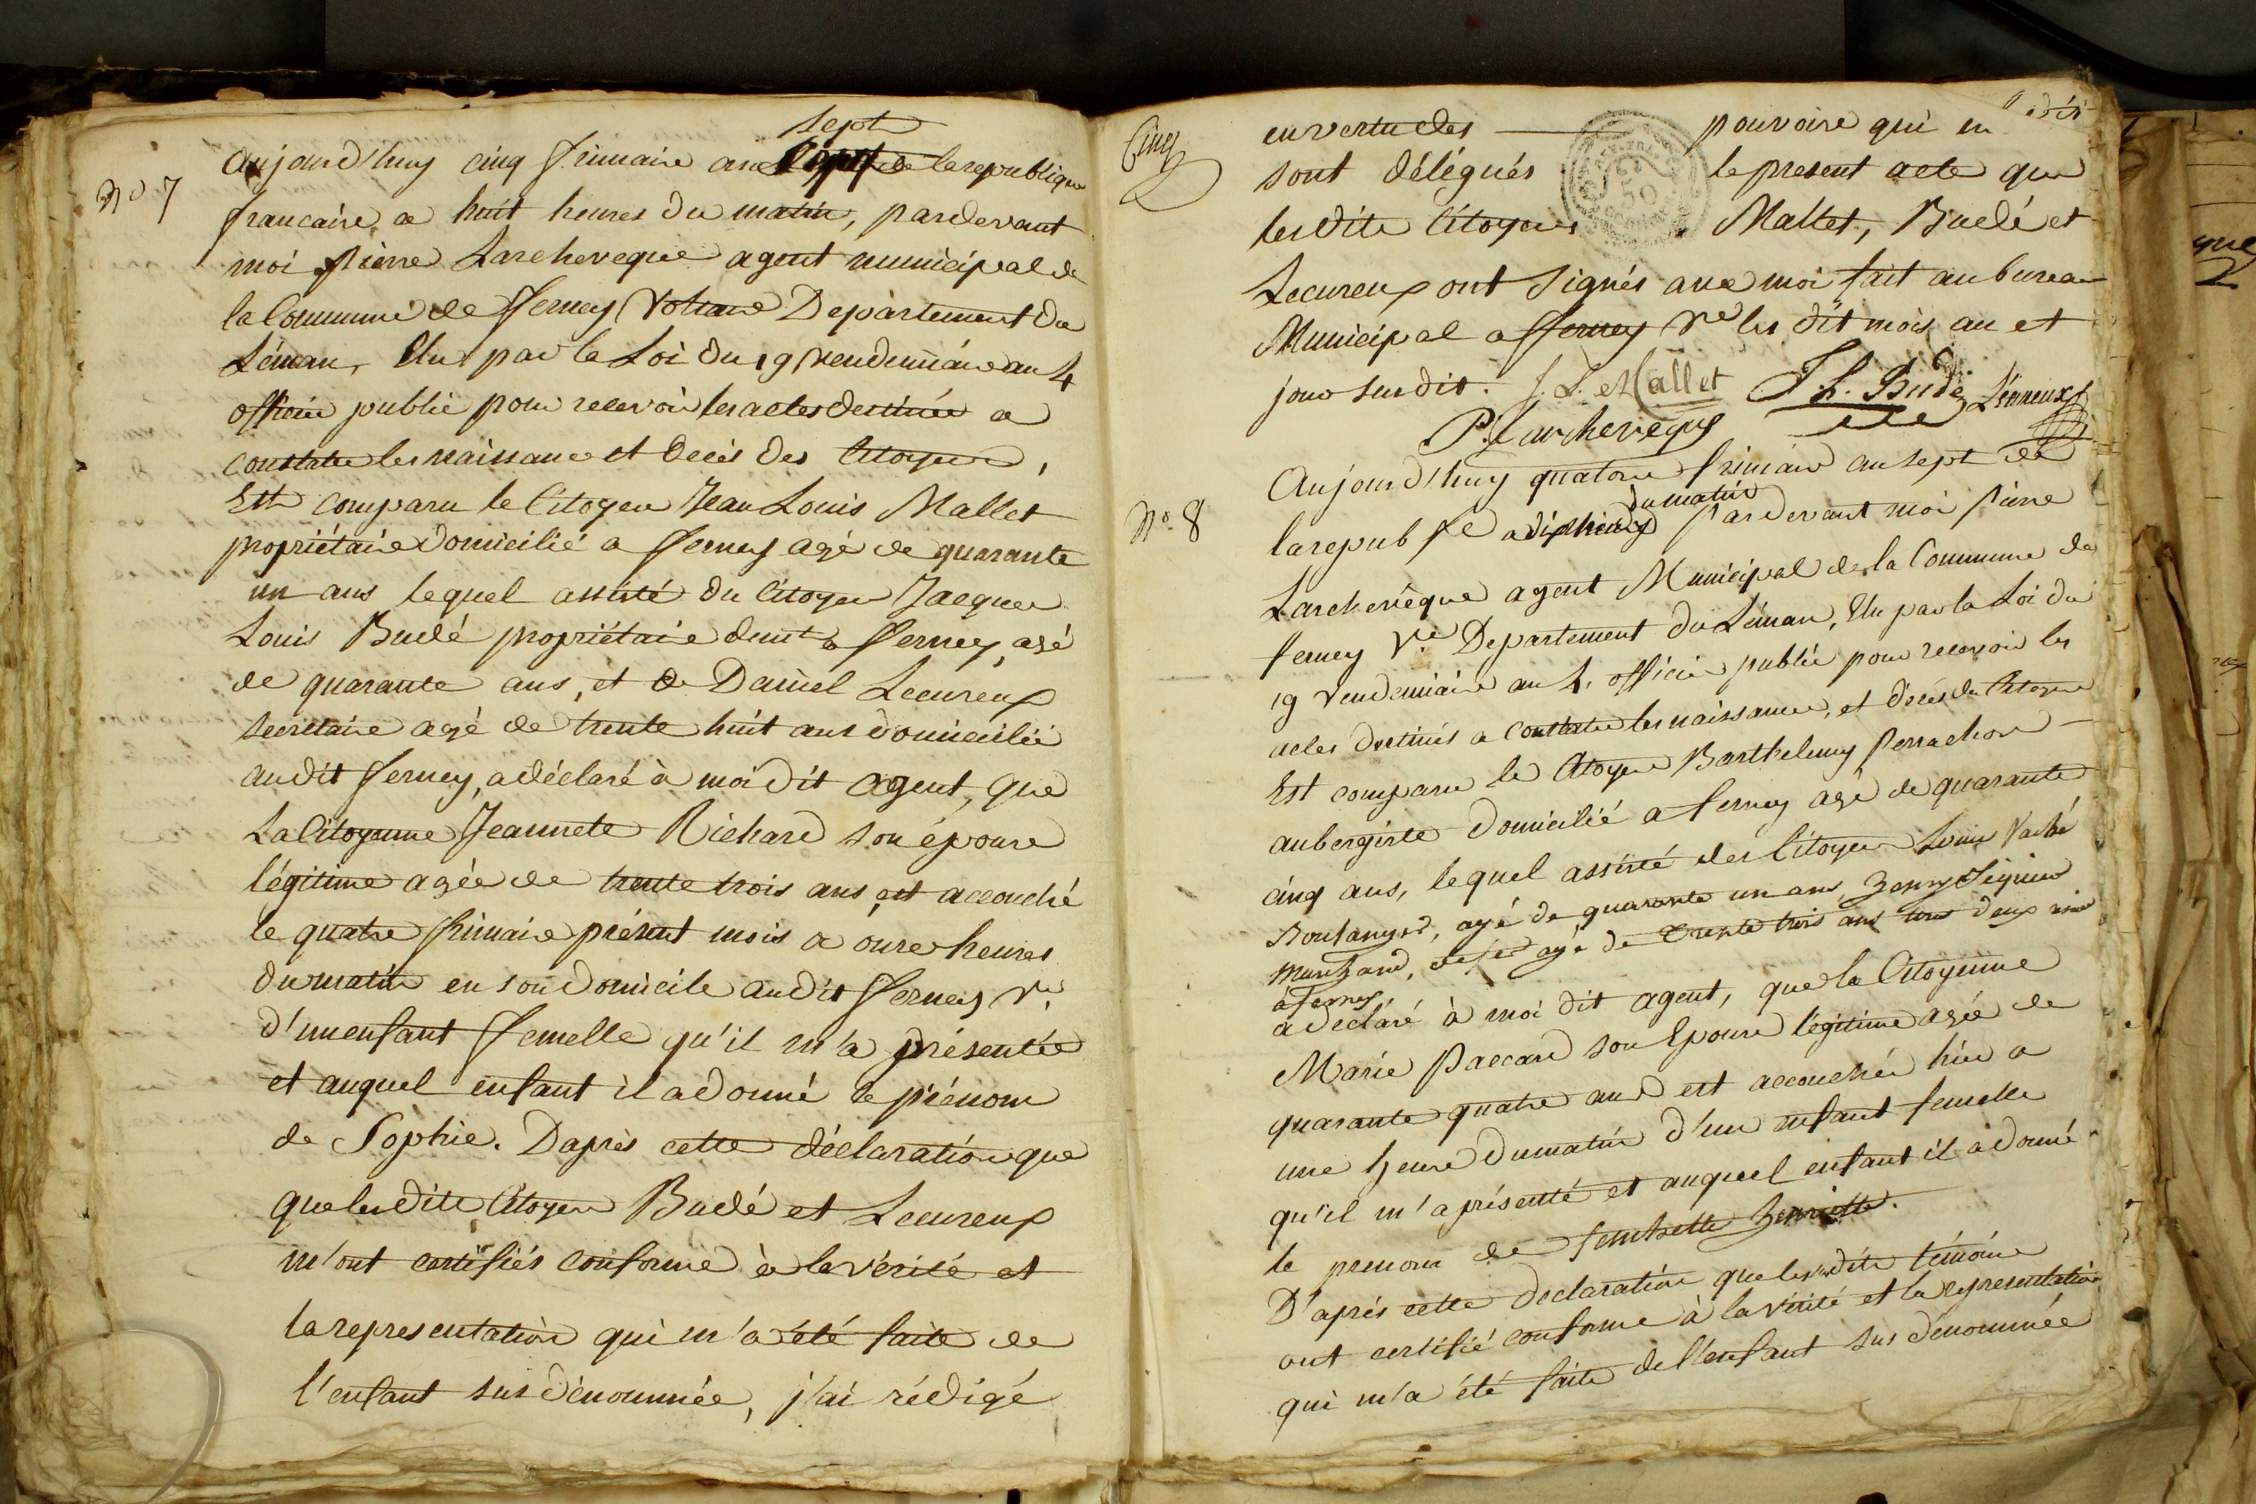 sept
N° 7
Aujourd'huy cinq frimaire an de la republique
francaise a huit heures du matin, pardevant
moi Pierre Larcheveque agent municipal de
la Commune de Ferney Voltaire Departement du
Léman, Elu par la Loi du 19 vendemiaire an 4
officier public pour recevoir les actes destinés a
constater les naissance et decès des Citoyens,
Est comparu le Citoyen Jean Louis Mallet
propriétaire domicilié a ferney agé de quarante
un ans lequel assisté du Citoyen Jacques
Louis Budé propriétaire demt a ferney, agé
de quarante ans, et de Daniel Lecureux
secretaire agé de trente huit ans domicilié
audit ferney, a déclaré à moi dit agent, que
La Citoyenne Jeannete Richard son épouse
légitime agée de trente trois ans, est accouché
le quatre frimaire présent mois a onze heures
du matin en son domicile audit ferney Vre
d'un enfant femelle qu'il m'a présentée
et auquel enfant il a donné le prénom
de Sophie. Daprès cette déclaration que
que lesdits Citoyens Budé et Lecureux
m'ont certifiés conforme à la vérité et
la representation qui m'a été faite de
l'enfant sus dénommée, j'ai rédigé
Cinq
en vertu des pouvoirs qui m'
sont délégués le present acte que
lesdits Citoyens Mallet, Budé et
Lecureux ont signés avec moi fait au bureau
Municipal a fferney Vre les dit mois an et
jour susdit. J. L. Mallet J. L. Budé Lécureux
P. Larcheveque
N° 8
Aujourd'huy quatorze frimaire an sept de
du matin
la repub fse a dix heures Pardevant moi Pierre
Larcheveque agent Municipal de la Commune de
ferney Vre Departement du Léman, Elu par la Loi du
19 vendemiaire an 4, officier public pour recevoir les
actes destinés a constater les naissances, et décès des Citoyens
Est comparu le Citoyen Barthelemy Perrachon
aubergiste domicilié a ferney agé de quarante
cinq ans, lequel assisté des Citoyen Louis Vaché
Boulanger, agé de quarante un ans, henry Seigneur
marchand, agé de trente trois ans tous deux
a Ferney
a déclaré à moi dit agent, que la Citoyenne
Marie Paccard son Epouse légitime agée de
quarante quatre ans est accouchée hier a
une heure du matin d'un enfant femelle
qu'il m'a présenté et auquel enfant il a donné
le prenom de henriette.
D'après cette declaration que lesdits témoins
ont certifié conforme à la vérité et la representation
qui m'a été faite de l'enfant sus dénommée